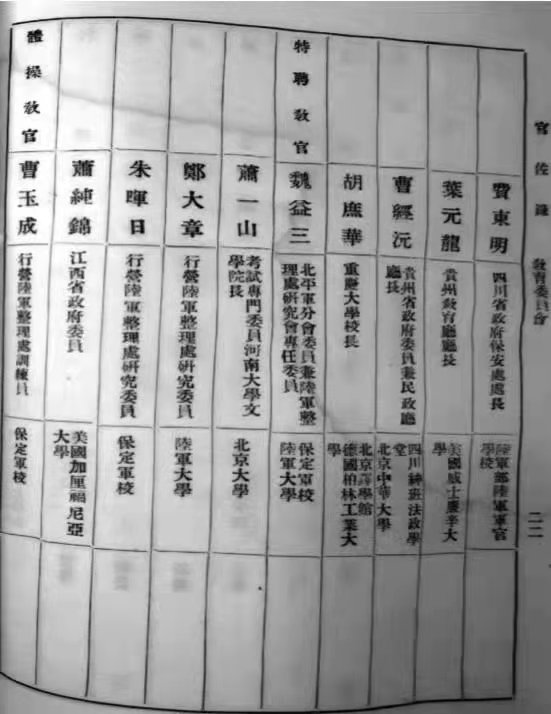 官佐錄
教育委員會
二二
費東明
四川省政府保安處處長
陸軍部陸軍軍官
學校
葉元龍
貴州敎育廳廳長
美國威士康辛大
學
曹經沅
貴州省政府委員兼民政廳
廳長
四川紳班法政學
堂
北京中華大學
胡庶華
重慶大學校長
北京譯學館
德國柏林工業大
學
特聘敎官
魏益三
北平軍分會委員兼陸軍整
理處研究會專任委員
保定軍校
陸軍大學
蕭一山
考試專門委員河南大學文
學院長
北京大學
鄭大章
行營陸軍整理處研究委員
陸軍大學
朱暉日
行營陸軍整理處研究委員
保定軍校
蕭純錦
江西省政府委員
美國加厘福尼亞
大學
體操敎官
曹玉成
行營陸軍整理處訓練員
保定軍校